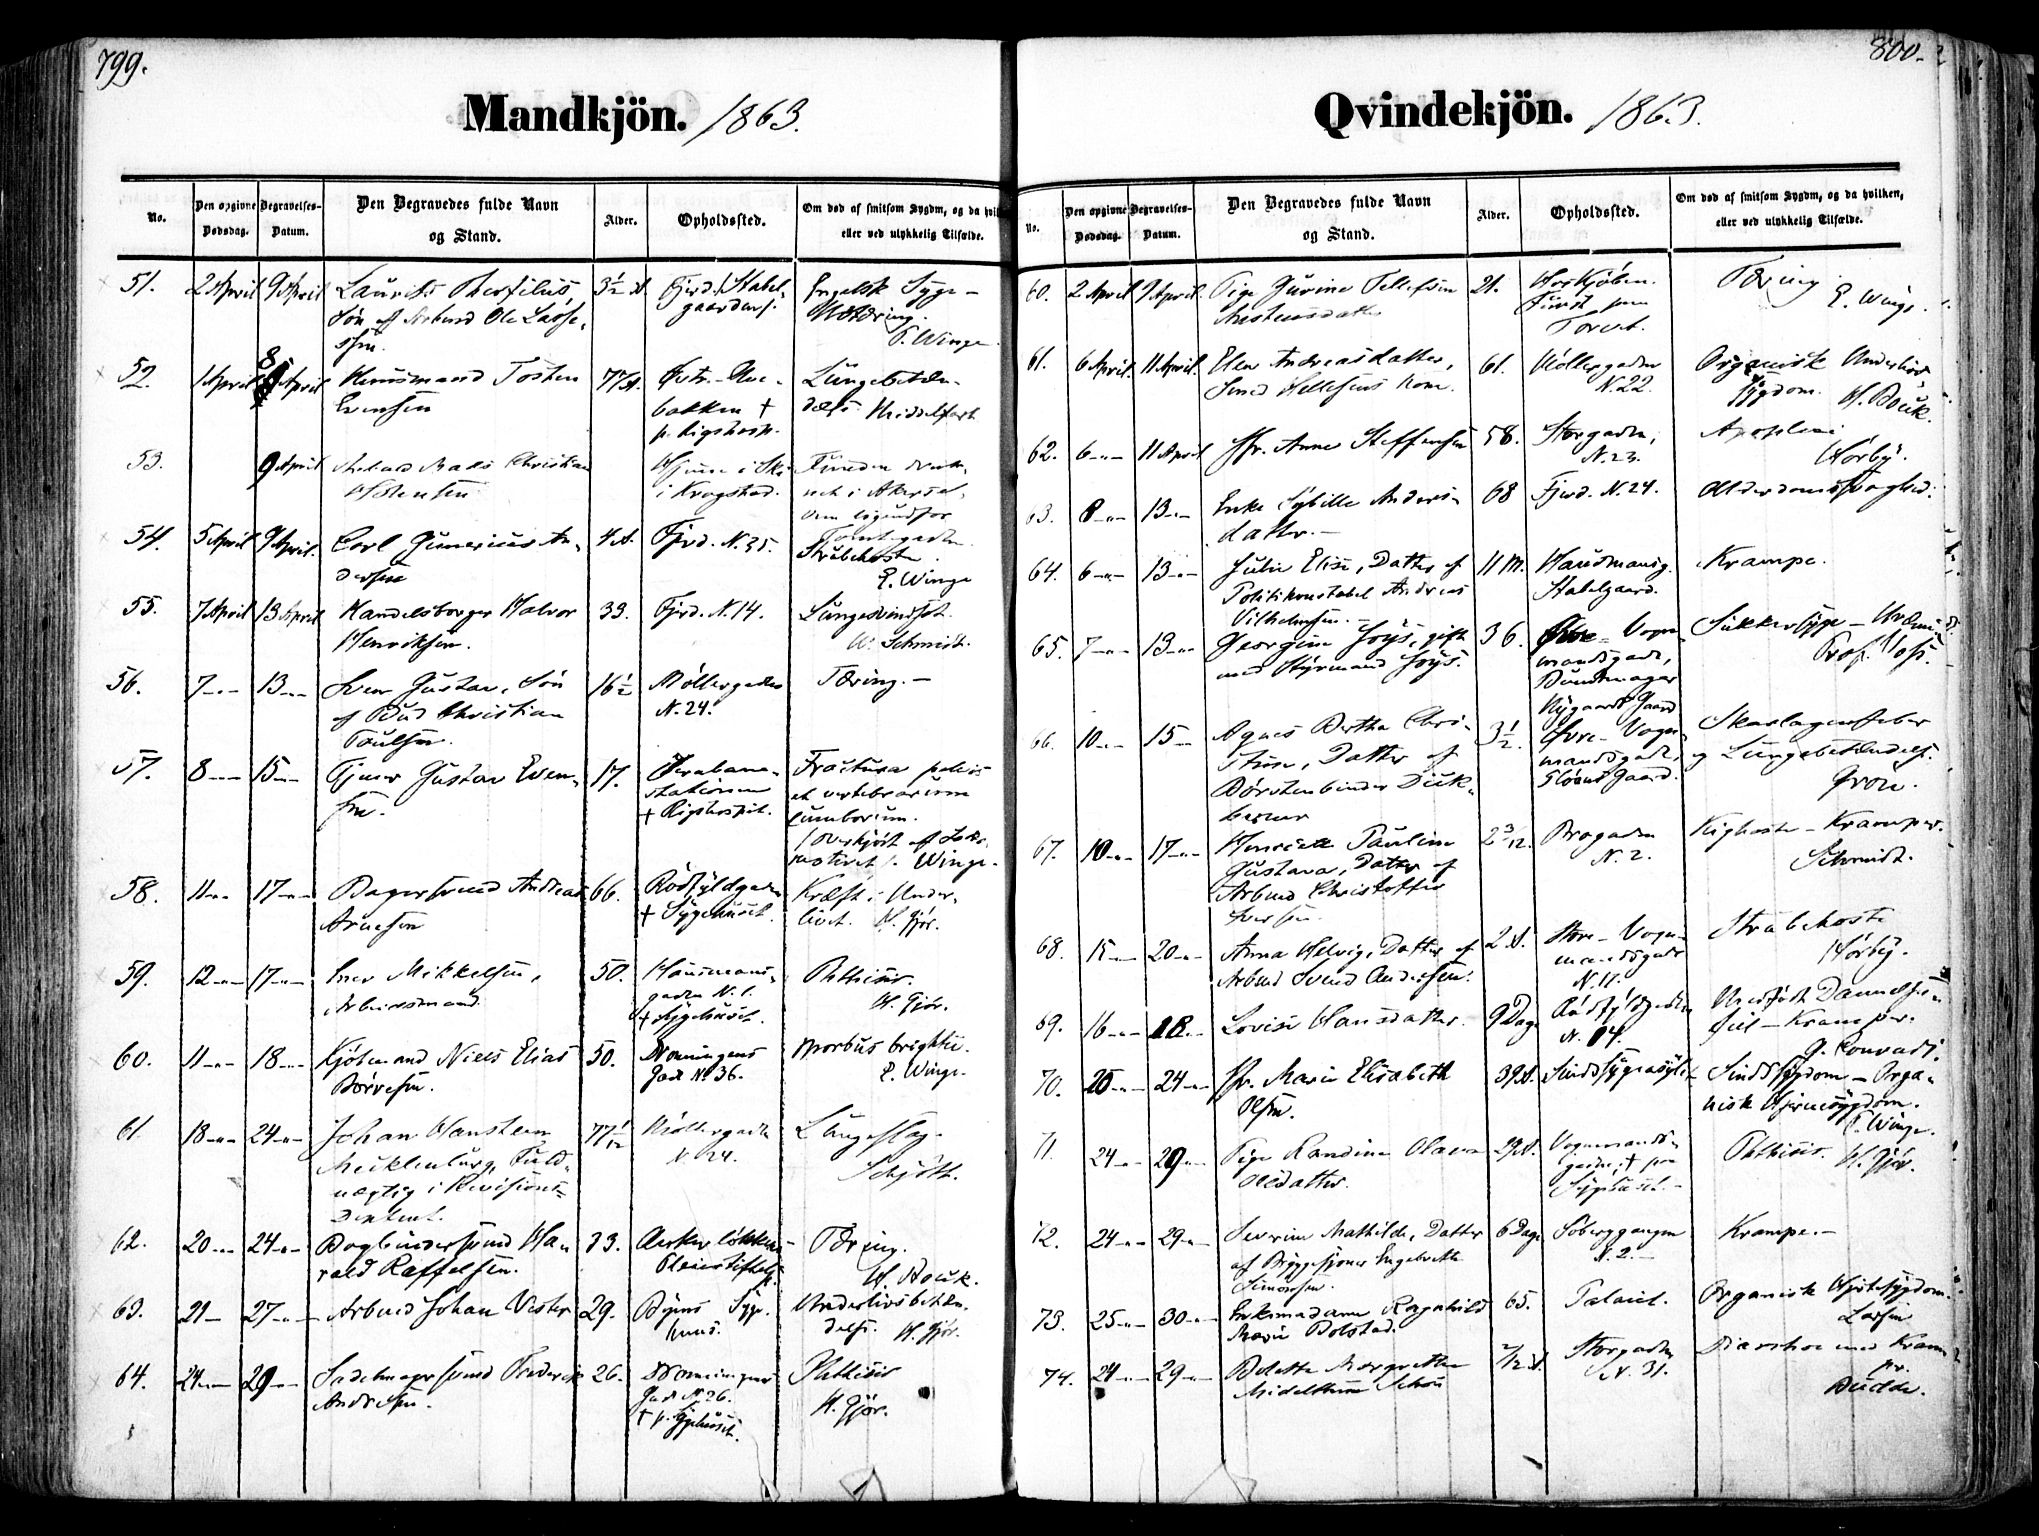 799.
Mandkjön. 1863.
No.
Den opgivne Dødsdag.
Begravelses-Datum.
Den Begravedes fulde Navn og Stand.
Alder.
Opholdssted.
Om død af smitsom Sygdm, og da hvilken, eller ved ulykkelig Tilfælde.
51. 2 April 9 April Laurits
Søn af Arbmd Ole Lasse-
sen.
3½ A. Fjerd.
Engelsk Syge –
E. Winge
52. 1 April 8 April Huusmand Tosten
Evensen
77 A. Østre-
bakken †
p. Rigshosp.
Lungebetæn-
delse Middelfart
53. 9 April Mads Christian
Hjemme i Ski
i Kragstad.
Funden druk-
net i Akersel-
ven
54. 5 April 9 April. Carl Gunerius An-
dersen
4 A. Fjrd. N. 35.
Strubehoste.
E. Winge
55. 7 April 13 April Handelsborger Halvor
Henriksen.
33. Fjrd. N. 14.
Lungesvindsot.
Schmidt.
56. 7 –„– 13 –„– Gustav, Søn
af Bud Christian
Poulsen.
16½ Møllergaden
N. 24.
Tæring. –
57. 8 –„– 15 –„– Tjener Gustav Even-
sen.
17. Jernbane-
stationen
† Rigshospit.
Fractura pelvis
et vertebrarum
lumborum.
/ Overkjørt af Loko-
motivet /. Winge.
58. 11 –„– 17 –„– Bagersvend Andreas
Arnesen
66. Rødfyldgaden
† Sygehuset.
Kræft i Under-
livet. H. Gjør.
59. 12 –„– 17 –„– Iver Mikkelsen,
Arbeidsmand.
50. Hausmans-
gaden N. 1.
† Sygehuset.
Phthisis.
H. Gjør.
60. 11 –„– 18 –„– Kjøbmand Niels Elias
50. Dronningens
Gade No 36.
Morbus brightii.
E. Winge.
61. 18 –„– 24 –„– Johan Hansteen
Mecklenburg, Fuld-
mægtig i Revisions-
Departmt.
77 1/12 Møllergaden
N. 24.
Lungeslag.
Schjøtt.
62. 20 –„– 24 –„– Bogbindersvend Ha-
rald Raffelsen.
33. Ankerløkkens
Pleiestiftelse.
Tæring.
63. 21 – 27 –„– Arbmd Johan
29. Byens Syge-
huus.
Underlivsbetæn-
delse. H. Gjør.
64. 24 –„– 29 –„– Sadelmagersvend Frederik
Andersen.
26. Dronningens
Gade N 26.
† p. Sygehuset.
Phthisis
H. Gjør.
800.
Qvindekjön. 1863.
No.
Den opgivne Dødsdag.
Begravelses-Datum.
Den Begravedes fulde Navn og Stand.
Alder.
Opholdssted.
Om død af smitsom Sygdom, og da hvilken, eller ved ulykkelig Tilfælde.
60. 2 April 9 April. Pige Gurine Tellefsen
21.
Torvet.
Tæring
E. Winge.
61. 6 April. 11 April. Elen Andreasdatter,
Kone.
61. Møllergaden
N. 22.
Organisk Underlivs-
sygdom.
62. 6 –„– 11 April Jfr. Anne Steffensen
58. Storgaden,
N. 23.
Apoplexi
Hørbÿ.
63. 8 –„– 13 –„– Enke Sybille Anders-
datter. –
68 Fjerd. N. 24.
Alderdomssvaghed.
64. 6 –„– 13 –„– Julie Elise, Datter af
Politikonstabel Andreas
Vilhelmsen. –
11 M. Hausmansg.
Stabelgaard.
Krampe.
65. 7 –„– 13 –„– Georgine Joÿs, gift
med Styrmand Joÿs.
36. Øvre – Vogn-
mandsgade,
Buntmager
Nygaards Gaard
Sukkersyge –
Prof. Voss.
66. 10 –„– 15 –„– Agnes Bertha Chri-
stine, Datter af
Børstenbinder
3½. Øvre – Vogn-
mandsgade,
Gaard.
Skarlagensfeber
og Lungebetændelse.
67. 10 –„– 17 –„– Henriette Pauline
Gustava, Datter af
Arbmd Christoffer
Iversen.
2 3/12. Brogaden
N. 2.
Kighoste – Kramper.
Schmidt.
68. 15 –„– 20 –„– Anna Helvig, Datter af
Arbmd Svend Andersen.
2 A. Store – Vogn-
mandsgade
N. 11.
Strubehoste
Hørbÿ.
69. 16 –„– 18 –„– Lovise Hansdatter.
9 Dage Rødfyldgaden
Medfødt Dannelses-
feil – Kramper.
J. Conradi.
70. 20 –„– 24 –„– Fr. Marie Elisabeth
Olsen.
39 A. Sindssygeasylet
Sindssygdom – Orga-
nisk Hjernesygdom.
E. Winge.
71. 24 –„– 29 –„– Pige Randine Olava
Olsdatter.
29 A. Vognmands-
gaden, † paa
Sygehuset. –
Phthisis. H. Gjør.
72. 24 –„– 29 –„– Severine Mathilde, Datter
af Bryggesjouer Engebreth
Simonsen.
6 Dage Soberggangen
N. 2. –
Krampe. –
73. 25 –„– 30 –„– Enkemadame Ragnhild
Marie Bolstad.
65. Palæet.
Organisk Hjertesygdom.
Larsen
74. 24 –„– 29 –„– Bolette Margrethe
Midelthun Schou
Storgaden
N. 31.
Diarrhoe med Kram-
per.
Budde.